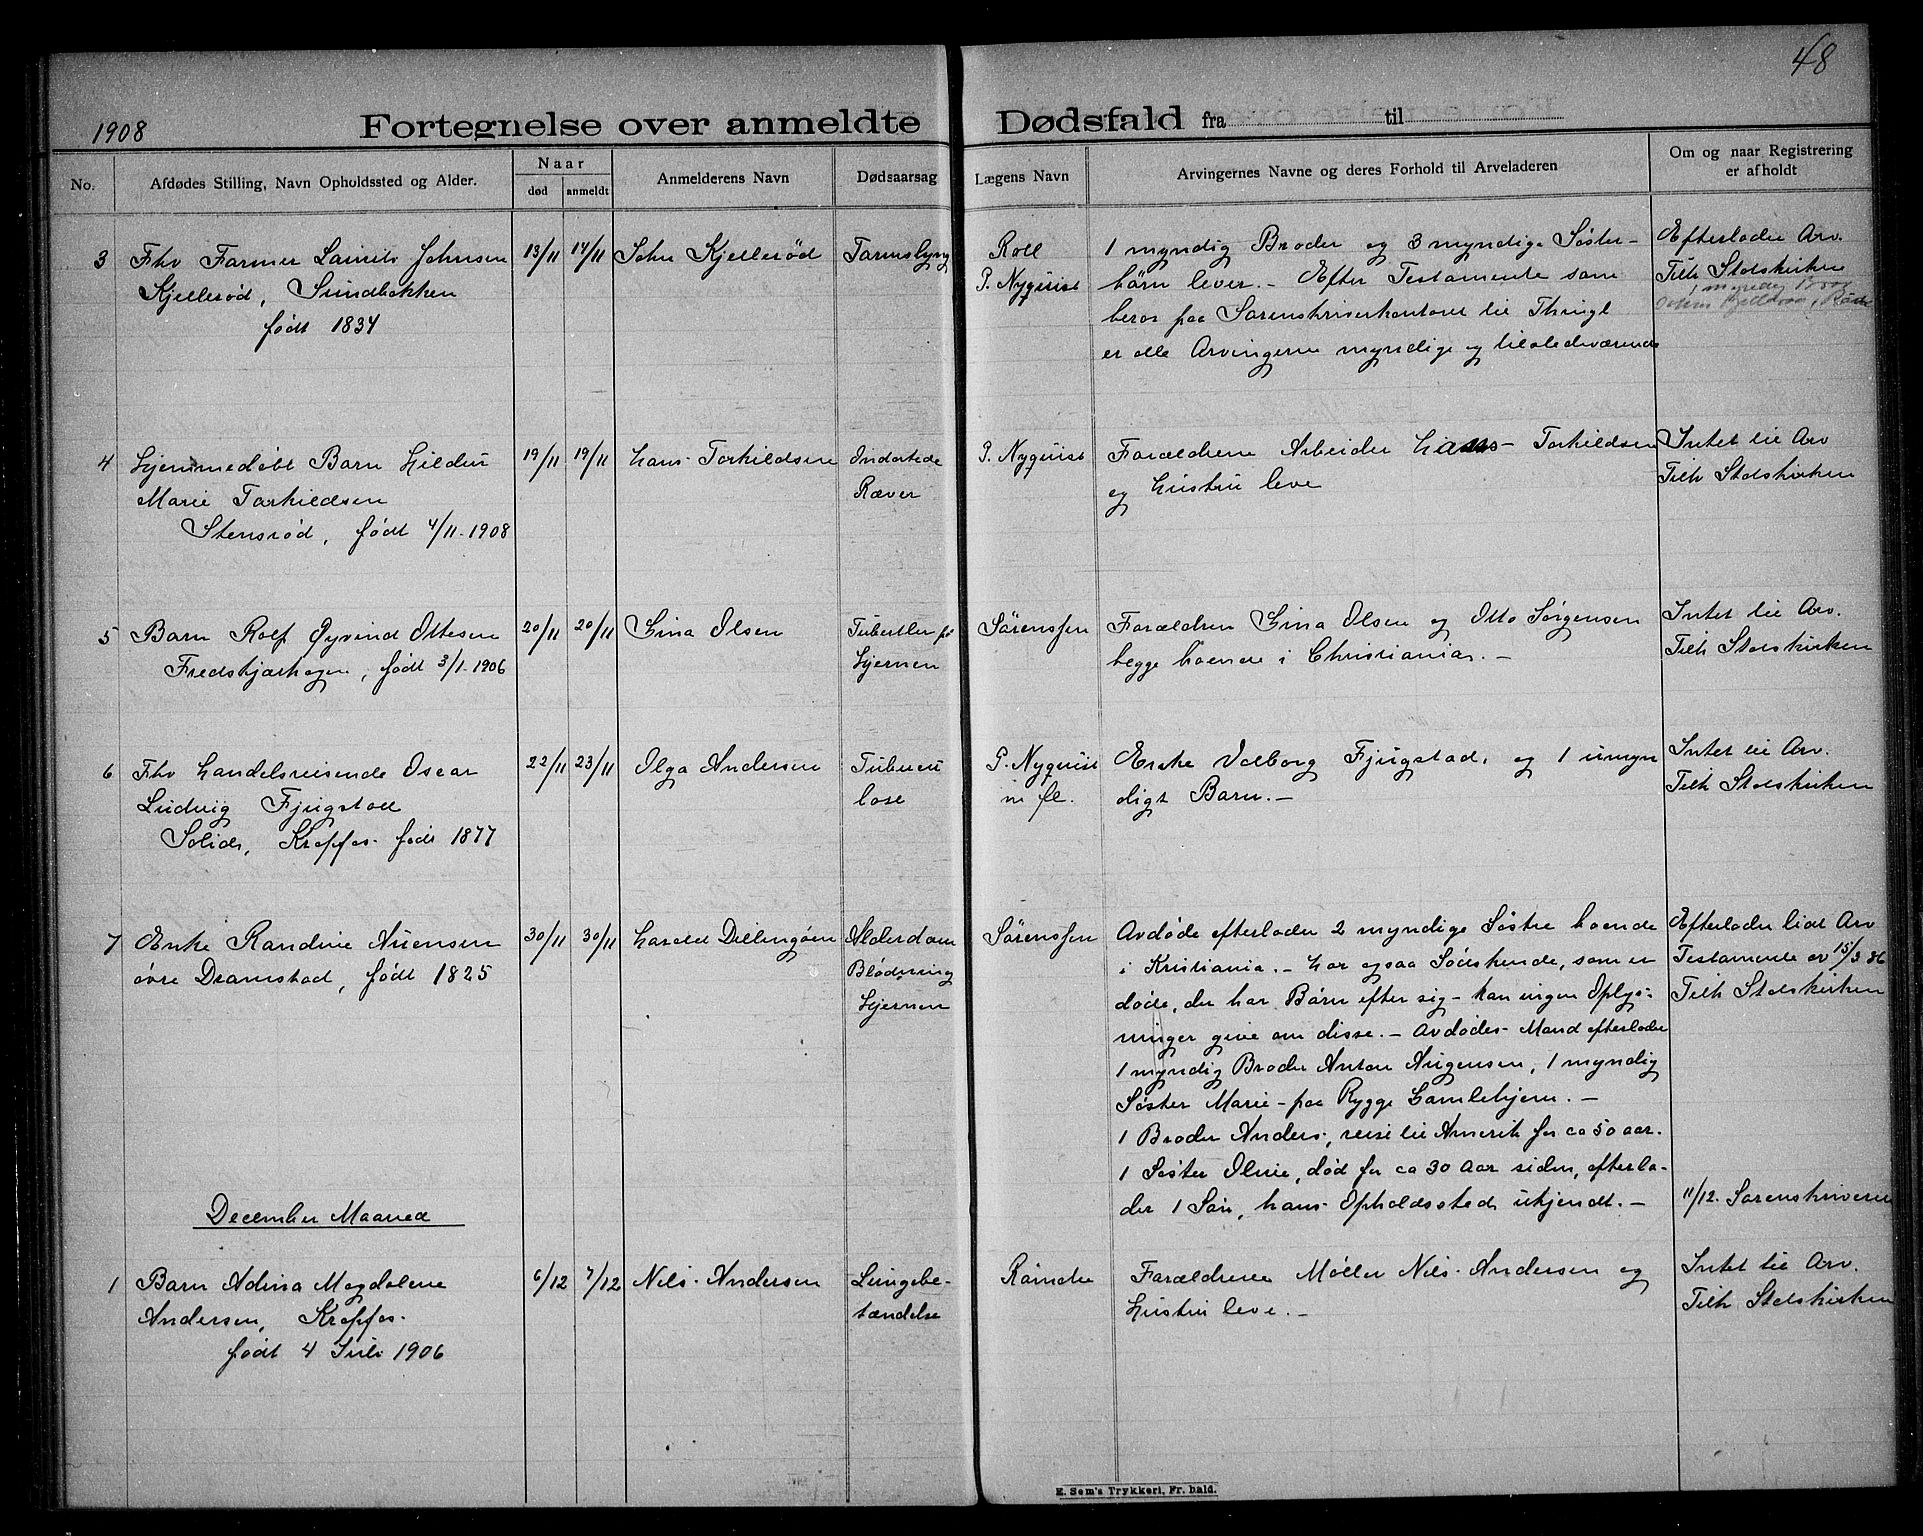 48
1908
Fortegnelse over anmeldte Dødsfald fra til
No.
Afdødes Stilling, Navn Opholdssted og Alder.
Naar
død
anmeldt
Anmelderens Navn
Dødsaarsag
Lægens Navn
Arvingernes Navne og deres Forhold til Arveladeren
Om og naar Registrering
er afholdt
3
Fhv Farmer Laurits Johnsen
Kjellerød, Sundbakken
født 1834
13/11
14/11
John Kjellerød
Tarmslyng
Roll
P. Nyquist
1 myndig Broder og 3 myndige Søster-
børn lever. - Efter Testamente som
beror paa Sorenskriverkontoret til Thingl
er alle Arvingerne myndige og tilstedeværende
Efterlader Arv.
Tilh Statskirken
1 myndig Broder
4
Hjemmedøbt Barn Hildur
Marie Torkildsen
Stensrød, født 4/11-1908
19/11
19/11
Hans Torkildsen
Indvortede
Ræver
P. Nyquist
Forældrene Arbeider Hans Torkildsen
og Hustru leve
Intet til Arv
Tilh Statskirken
5
Barn Rolf Øyvind Ottesen
Fredskjærhagen, født 3/1-1906
20/11
20/11
Gina Olsen
Tuberkler på
Hjernen
Sørenssen
Forældren Gina Olsen og Otto Jørgensen
begge boende i Christiania. -
Intet til Arv.
Tilh Statskirken
6
Fhv Handelsreisende Oscar
Ludvig Fjugstad
Solid, Kropfos. født 1877
22/11
23/11
Olga Andersen
Tuberku
lose
P. Nyquist
m fl.
Enke Valborg Fjugstad, og 1 umyn
digt Barn. -
Intet til Arv.
Tilh Statskirken
7
Enke Randine Auensen
øvre Dramstad, født 1825
30/11
30/11
Harald Dillingøen
Alderdom
Blødning
Hjernen
Sørenssen
Avdøde efterlader 2 myndige Søstre boende
i Kristiania. - Har ogsaa Sødskende, som er
døde, der har Børn efter sig - kan ingen Oplys-
ninger give om disse. - Avdødes Mand efterlader
1 myndig Broder Anton Augensen, 1 myndig
Søster Marie - paa Rygge Gamlehjem. -
1 Broder Anders, reist til Amerik for ca 50 aar.
1 Søster Oline, død for ca 30 Aar siden, efterla-
der 1 Søn, hans Opholdssted ukjendt. -
Efterlader lidt Arv
Testamente av 15/3 86
Tilh Statskirken
11/12. Sorenskriveren
December Maaned
1
Barn Adina Magdalene
Andersen, Kropfos.
født 4 Juli 1906
6/12
7/12
Nils Andersen
Lungebe-
tændelse
Römcke
Forældrene Møller Nils Andersen og
Hustru leve. -
Intet til Arv.
Tilh Statskirken
E. Sem's Trykkeri, Fr. hald.